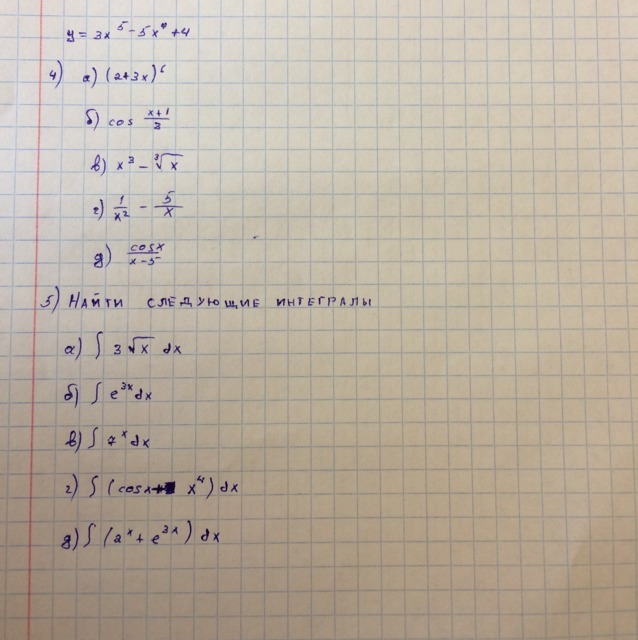 y = 3x⁵ - 5x⁴ + 4
4) а) (2+3x)⁶
б) cos (x+1)/3
в) x³ - ∛x
г) 1/x² - 5/x
д) cosx/(x-5)
5) Найти следующие интегралы
а) ∫ 3√x dx
б) ∫ e³ˣ dx
в) ∫ 7ˣ dx
г) ∫ (cosx + x⁴) dx
д) ∫ (2ˣ + e³ˣ) dx